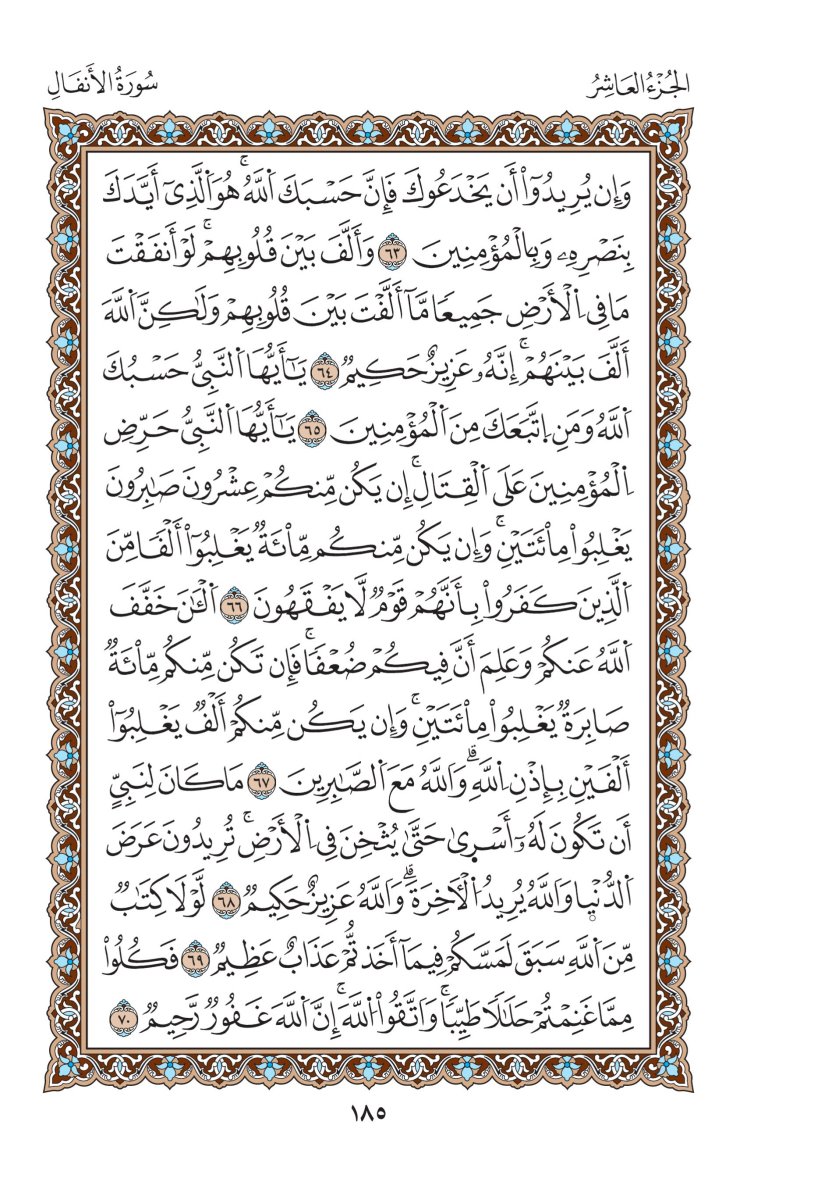 الجُزْءُ العَاشِرُ
سُورَةُ الأَنفَالِ
وَإِن يُرِيدُوٓاْ أَن يَخْدَعُوكَ فَإِنَّ حَسْبَكَ اَ۬للَّهُۖ هُوَ اَ۬لَّذِيٓ أَيَّدَكَ
بِنَصْرِهِۦ وَبِالْمُؤْمِنِينَ ٦٣ وَأَلَّفَ بَيْنَ قُلُوبِهِمْۖ لَوْ أَنفَقْتَ
مَا فِي اِ۬لْأَرْضِ جَمِيعٗا مَّآ أَلَّفْتَ بَيْنَ قُلُوبِهِمْ وَلَٰكِنَّ اَ۬للَّهَ
أَلَّفَ بَيْنَهُمْۖ إِنَّهُۥ عَزِيزٌ حَكِيمٞ ٦٤ يَٰٓأَيُّهَا اَ۬لنَّبِيُّ حَسْبُكَ
اَ۬للَّهُ وَمَنِ اِ۪تَّبَعَكَ مِنَ اَ۬لْمُؤْمِنِينَ ٦٥ يَٰٓأَيُّهَا اَ۬لنَّبِيُّ حَرِّضِ
اِ۬لْمُؤْمِنِينَ عَلَى اَ۬لْقِتَالِۖ إِن يَكُن مِّنكُمْ عِشْرُونَ صَٰبِرُونَ
يَغْلِبُواْ مِاْئَتَيْنِۖ وَإِن يَكُن مِّنكُم مِّاْئَةٞ يَغْلِبُوٓاْ أَلْفٗا مِّنَ
اَ۬لَّذِينَ كَفَرُواْ بِأَنَّهُمْ قَوْمٞ لَّا يَفْقَهُونَ ٦٦ اَ۬لْـَٰٔنَ خَفَّفَ
اَ۬للَّهُ عَنكُمْ وَعَلِمَ أَنَّ فِيكُمْ ضُعْفٗاۖ فَإِن تَكُن مِّنكُم مِّاْئَةٞ
صَابِرَةٞ يَغْلِبُواْ مِاْئَتَيْنِۖ وَإِن يَكُن مِّنكُمْ أَلْفٞ يَغْلِبُوٓاْ
أَلْفَيْنِ بِإِذْنِ اِ۬للَّهِۗ وَاللَّهُ مَعَ اَ۬لصَّٰبِرِينَ ٦٧ مَا كَانَ لِنَبِيٍّ
أَن تَكُونَ لَهُۥٓ أَسْر۪يٰ حَتَّىٰ يُثْخِنَ فِي اِ۬لْأَرْضِۖ تُرِيدُونَ عَرَضَ
اَ۬لدُّنْي۪ا وَاللَّهُ يُرِيدُ اُ۬لْأٓخِرَةَۗ وَاللَّهُ عَزِيزٌ حَكِيمٞ ٦٨ لَّوْلَا كِتَٰبٞ
مِّنَ اَ۬للَّهِ سَبَقَ لَمَسَّكُمْ فِيمَآ أَخَذتُّمْ عَذَابٌ عَظِيمٞ ٦٩ فَكُلُواْ
مِمَّا غَنِمْتُمْ حَلَٰلٗا طَيِّبٗاۖ وَاتَّقُواْ اُ۬للَّهَۖ إِنَّ اَ۬للَّهَ غَفُورٞ رَّحِيمٞ ٧٠
١٨٥